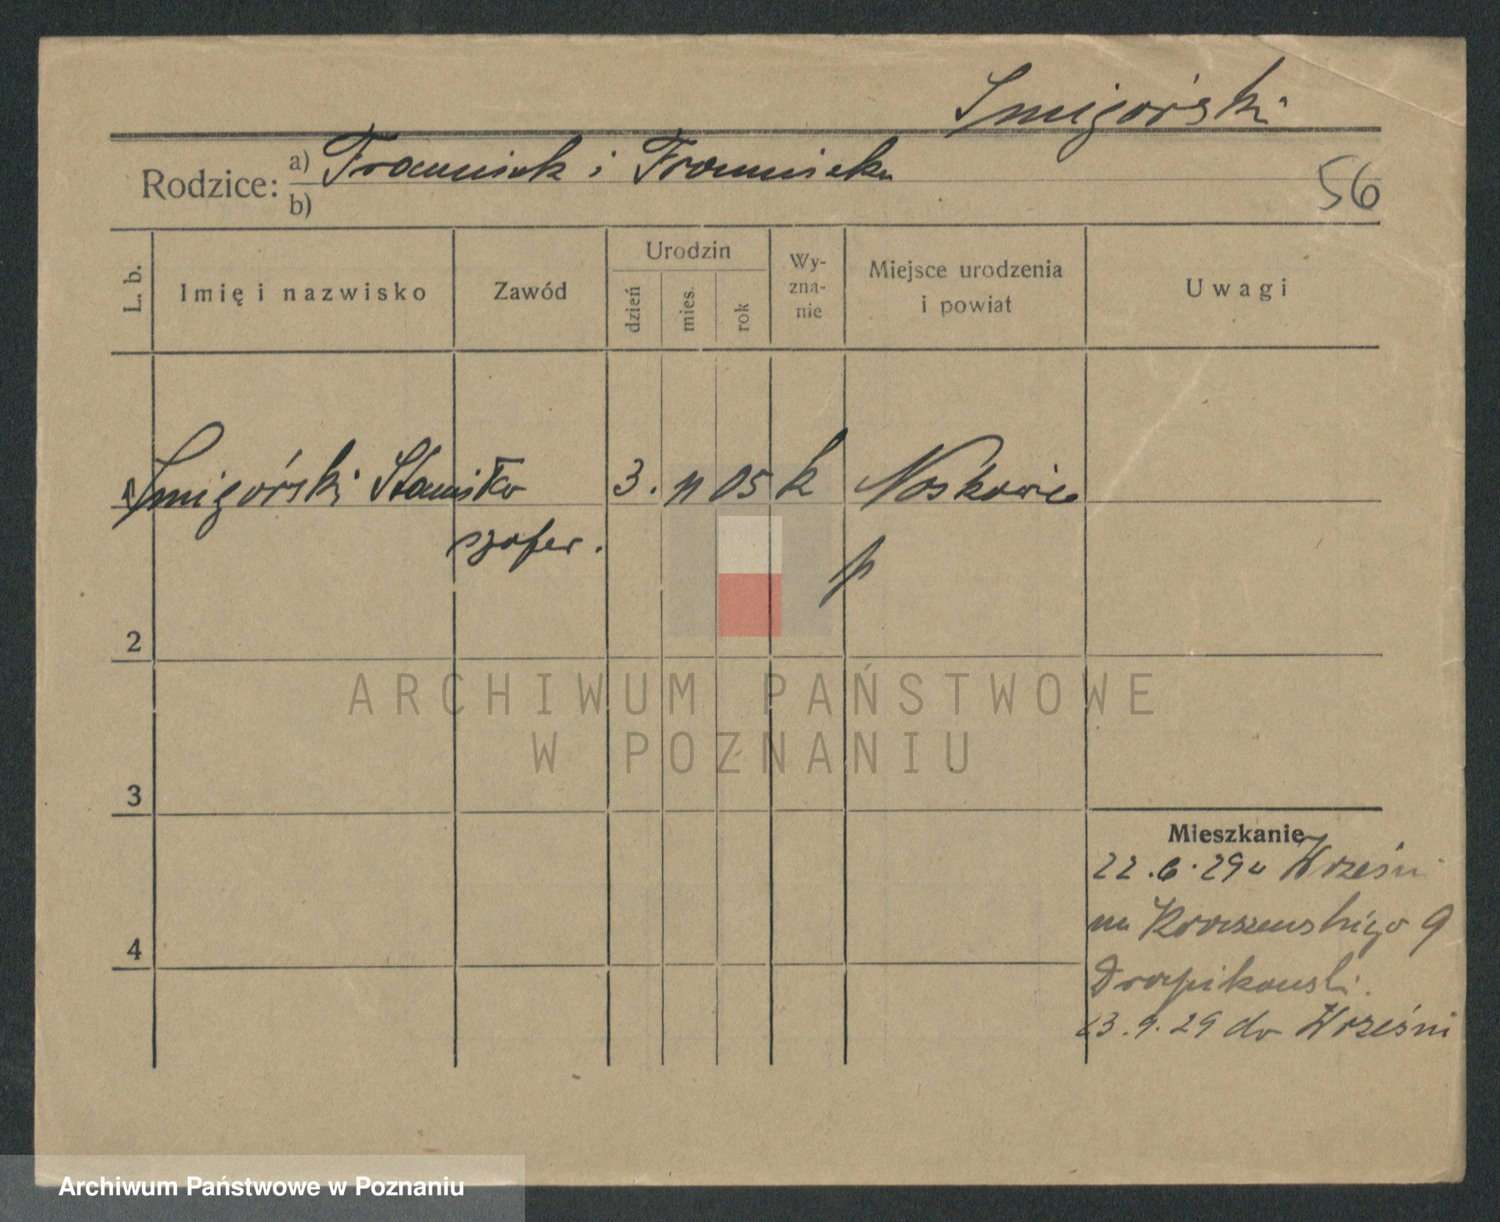 Smigórski
Rodzice: a) Franciszek i Franciszka
b)
56
L. b.
Imię i nazwisko
Zawód
Urodzin
dzień
mies.
rok
Wy-
zna-
nie
Miejsce urodzenia
i powiat
Uwagi
1 Smigórski Stanisław 3. 11 05 k
szofer.
2
3
4
ARCHIWUM PAŃSTWOWE
W POZNANIU
Mieszkanie
22.6.29 z Wrześni
9
Drapikowski.
23.9.29 do Wrześni
Archiwum Państwowe w Poznaniu